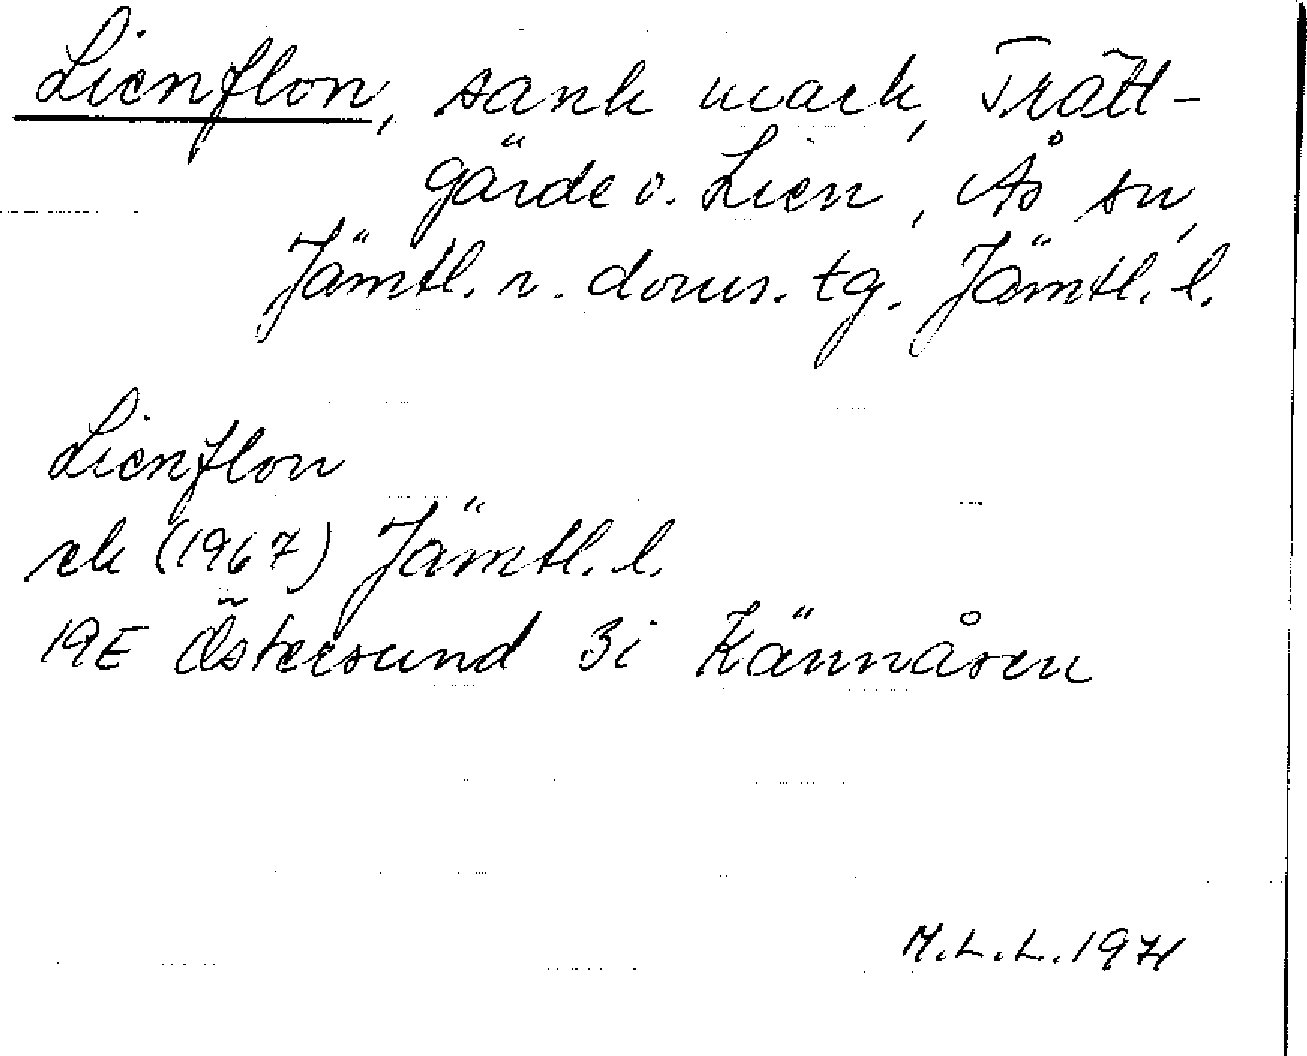 Lienflon, sank mark, Trätt-
gärde o. Lien, Ås sn,
Jämtl. n. doms. tg. Jämtl. l.
Lienflon
rek (1967) Jämtl. l.
19E Östersund 3i Kännåsen
M.L.L. 1971